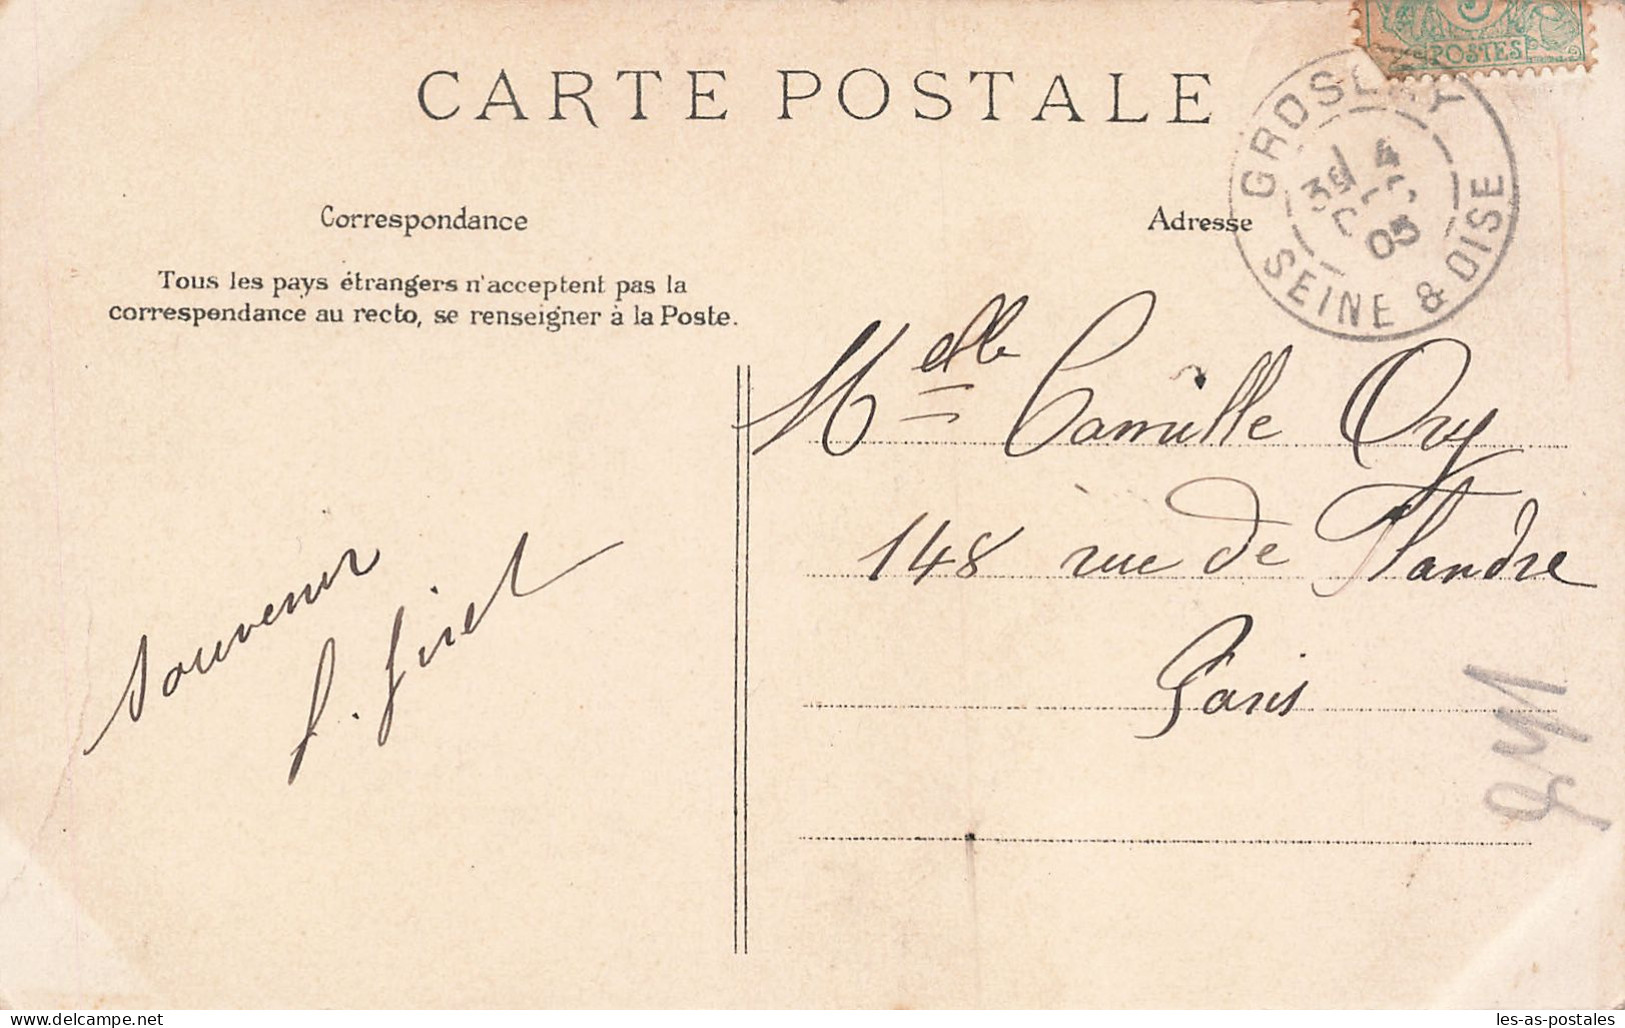 POSTES
CARTE POSTALE
GROSLAY
SEINE & OISE
4
05
Correspondance
Adresse
Tous les pays étrangers n'acceptent pas la
correspondance au recto, se renseigner à la Poste.
Melle Camille Ory
148 rue de Flandre
Paris
Souvenir
f. firet
les-as-postales